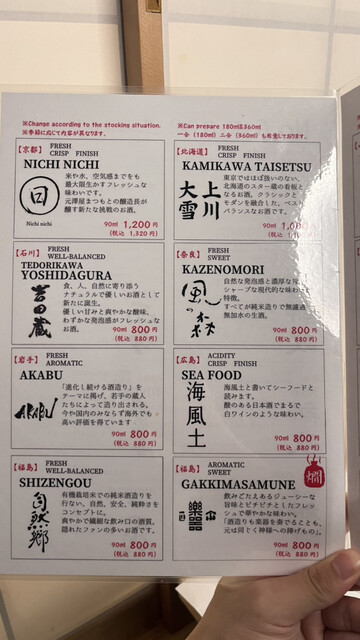 ※Change according to the stocking situation.
※季節に応じて内容が異なります。
【京都】
FRESH
CRISP FINISH
NICHI NICHI
日
Nichi nichi
米や水、空気感までをも
最大限生かすフレッシュな
味わいです。
元澤屋まつもとの醸造長が
醸す新たな挑戦のお酒。
90ml 1,200円
(税込 1,320円)
【石川】
FRESH
WELL-BALANCED
TEDORIKAWA
YOSHIDAGURA
吉田蔵
食、人、自然に寄り添う
ナチュラルで優しいお酒として
新たに誕生。
優しい甘みと爽やかな酸味、
わずかな発泡感がフレッシュな
お酒。
90ml 800円
(税込 880円)
【岩手】
FRESH
AROMATIC
AKABU
AKABU
「進化し続ける酒造り」を
テーマに掲げ、若手の蔵人
たちによって造り出される。
今や国内のみならず海外でも
高い評価を得ています
90ml 800円
(税込 880円)
【福島】
FRESH
WELL-BALANCED
SHIZENGOU
自然郷
有機栽培米での純米酒造りを
行ない、自然、安全、純粋さを
コンセプトに。
爽やかで繊細な飲み口の酒質。
隠れたファンの多いお酒です。
90ml 800円
(税込 880円)
※Can prepare 180ml&360ml
一合(180ml)二合(360ml)も用意しております。
【北海道】
FRESH
CRISP FINISH
KAMIKAWA TAISETSU
上川
大雪
東京ではほぼ扱いのない、
北海道のスター蔵の看板と
なるお酒。クラシックと
モダンを融合した、ベスト
バランスなお酒です。
90ml
(税込
【奈良】
FRESH
SWEET
KAZENOMORI
風の森
自然な発泡感と濃厚な旨
シャープな現代的な味わい
特徴。
すべてが純米造りで無濾過
無加水の生酒。
90ml 800円
(税込 880円)
【広島】
ACIDITY
CRISP FINISH
SEA FOOD
海風土
海風土と書いてシーフードと
読みます。
酸のある日本酒でまるで
白ワインのような味わい。
90ml 800円
(税込 880円)
【福島】
AROMATIC
SWEET
GAKKIMASAMUNE
樂器正宗
飲みごたえあるジューシーな
旨味とピチピチとしたフレッ
シュで華やかな味わい。
「酒造りも楽器を奏でることも、
元は同じく神様への捧げもの」。
90ml 800円
(税込 880円)